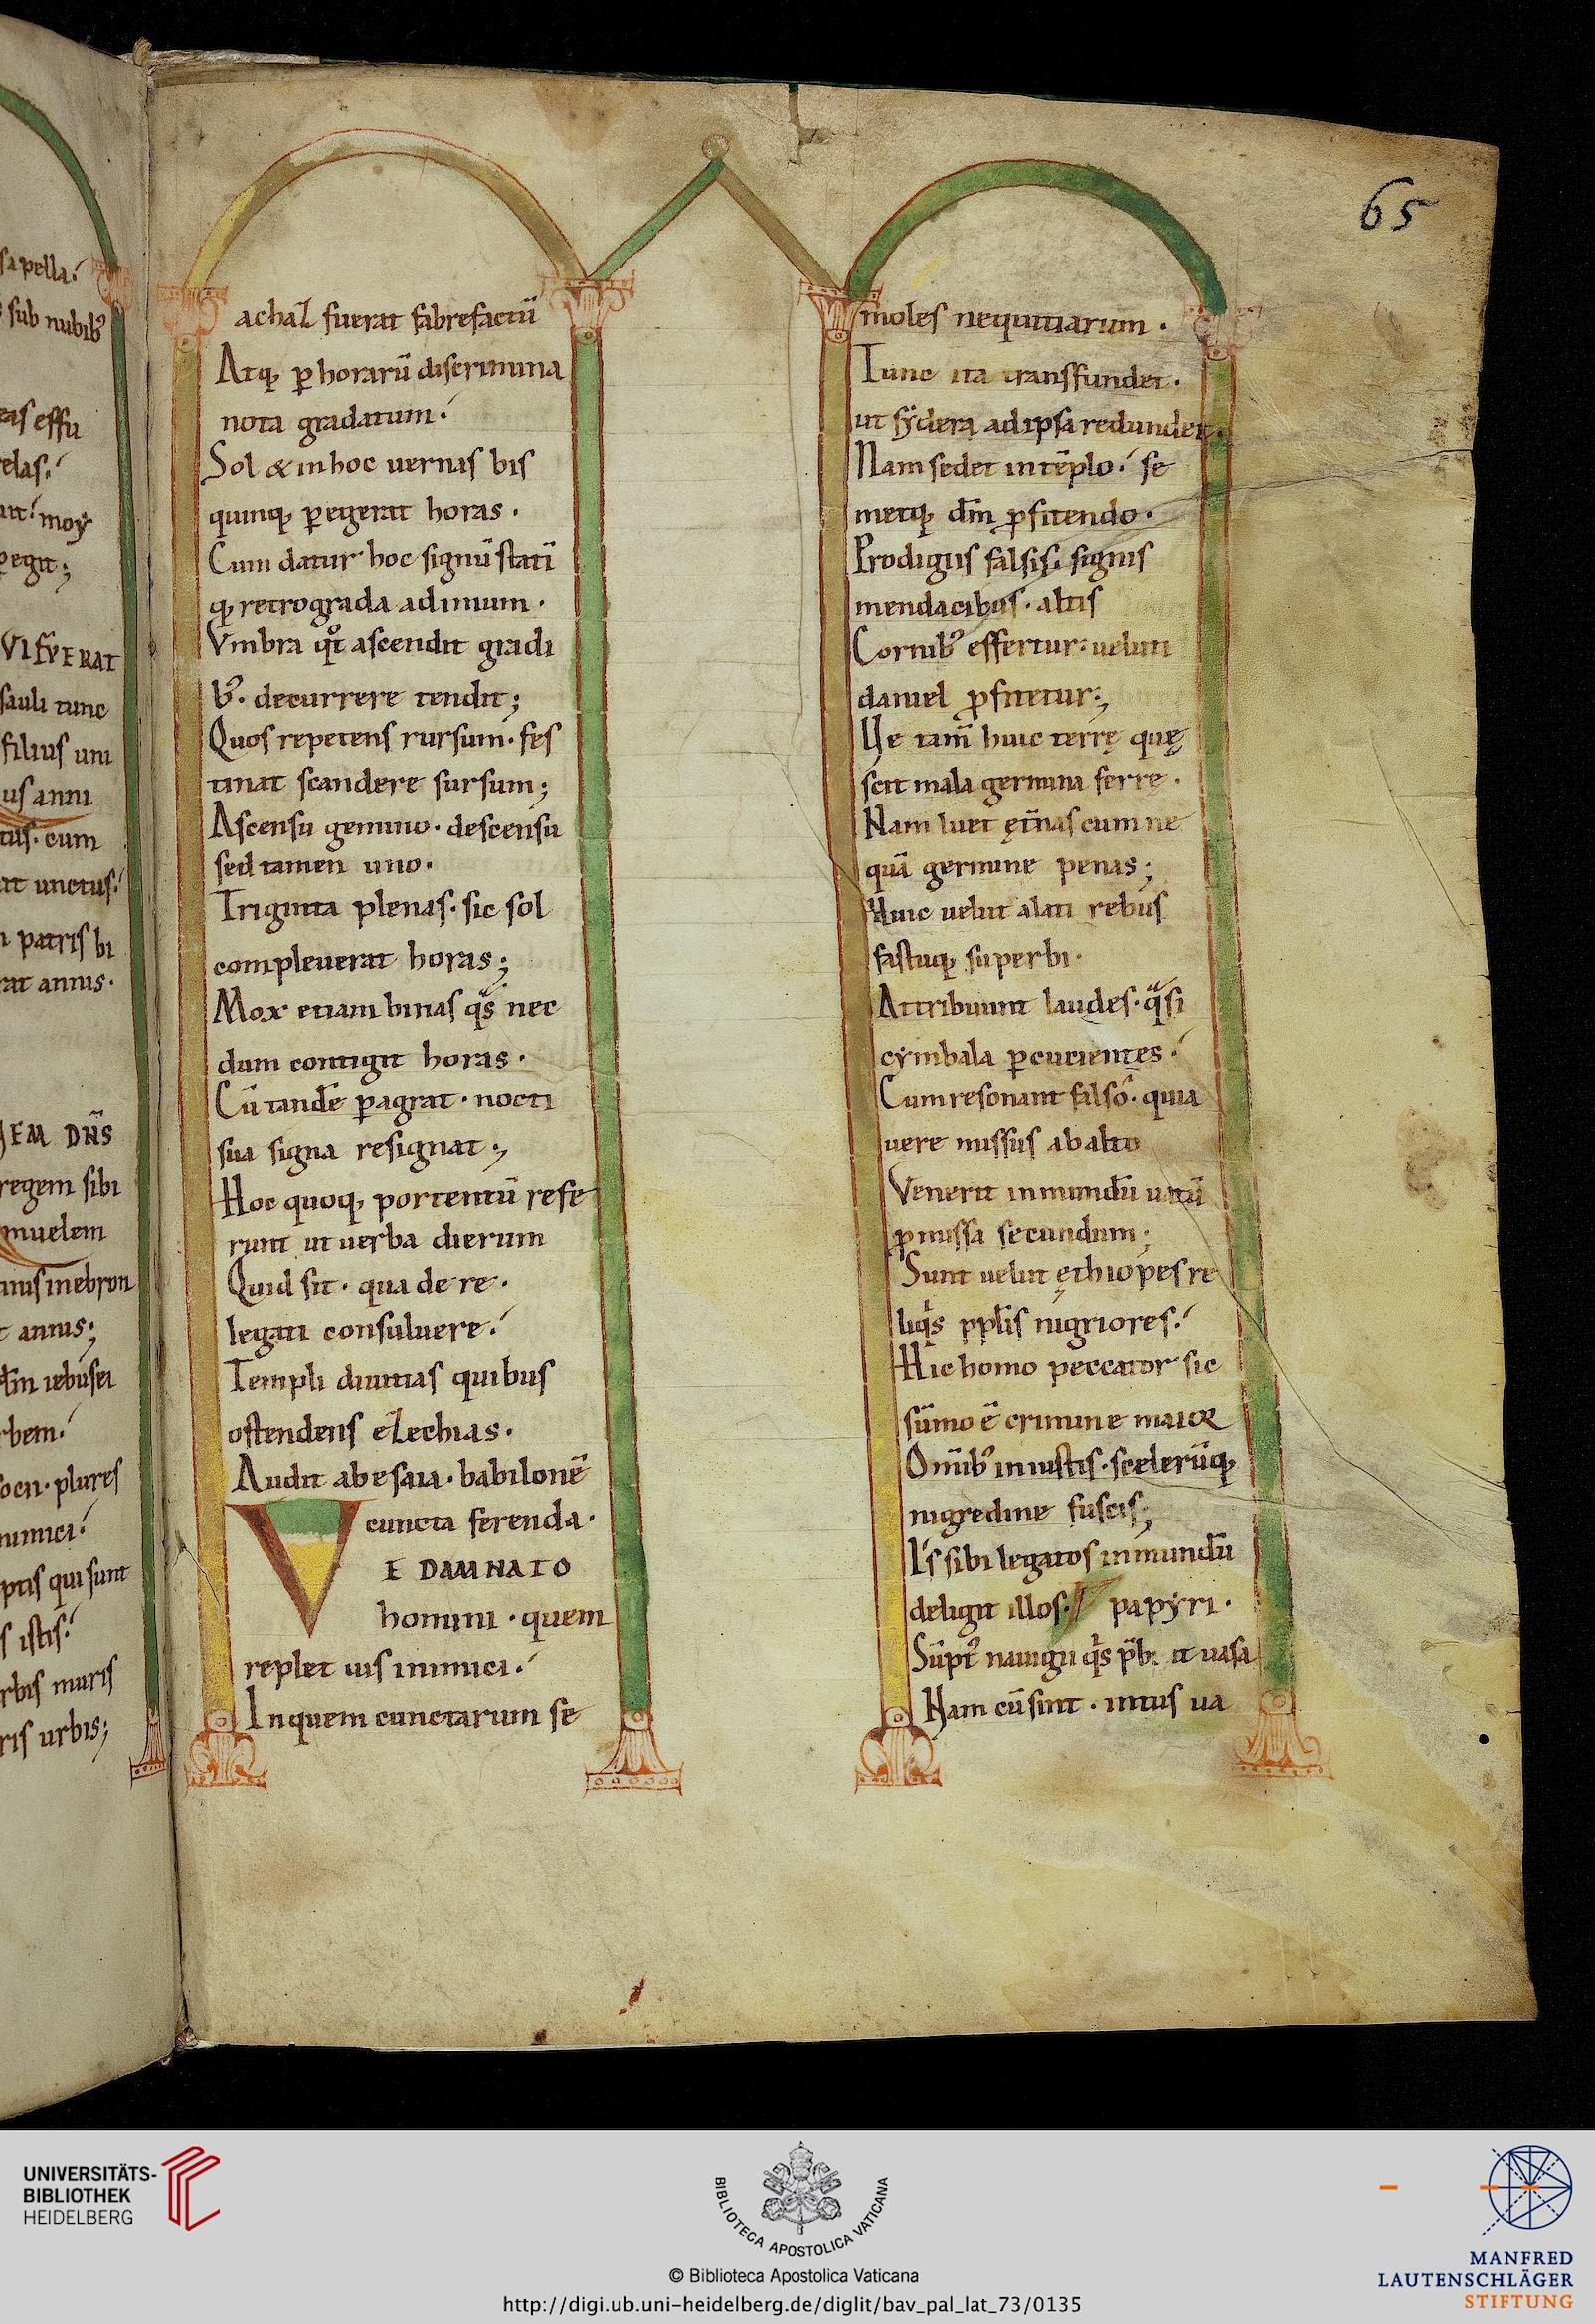 sa pella.
sub nubib᷒
eas effu
elas.
nt. moy
pegit;
VI FVERAT
sauli tunc
filius uni
us anni
tus. cum
at unctus.
n patris bi
rat annus.
EM DN̄S
regem sibi
muelem
nus inebron
annis;
dn̄i iebusei
rbem.
ocii. plures
nimici.
ptis qui sunt
s istis.
rbis muris
ris urbis;
65
achaz fuerat fabrefactū
Atq; ꝑ horarū discrimina
nota gradatum.
Sol & in hoc uernis bis
quinq; ꝑegerat horas.
Cum datur hoc signū statī
q; retrograda ad imum.
Vmbra qͦt ascendit gradi
b᷒. decurrere tendit;
Quos repetens rursum. fes
tinat scandere sursum;
Ascensu gemino. descensu
sed tamen uno.
Triginta plenas. sic sol
compleuerat horas;
Mox etiam binas qͣs nec
dum contigit horas.
Cū tandē ꝑagrat. nocti
sua signa resignat;
Hoc quoq; portentū refe
runt ut uerba dierum
Quid sit. qua de re.
legati consuluere.
Templi diuitias quibus
ostendens ezechias.
Audit ab esaia. babilonē
cuncta ferenda.
VE DAMNATO
homini. quem
replet uis inimici.
In quem cunctarum se
moles nequitiarum.
Tunc ita transfundet.
ut sẏdera ad ipsa redundet.
Nam sedet in tēplo. se
metq; dm̄ ꝓfitendo.
Prodigiis falsis. signis
mendacibus. altis
Cornib᷒ effertur. ueluti
daniel ꝓfitetur;
Ve tam̄ huic terrę quę
scit mala germina ferre.
Nam luet ęt̄nas cum ne
quā germine penas;
Huic uelut alati rebus
fastuq; superbi.
Attribuunt laudes. qͣsi
cẏmbala ꝑcucientes.
Cum resonant falso. quia
uere missus ab alto
Venerit in mundū uatū
ꝓmissa secundum;
Sunt uelut ęthiopes re
liqͥs ppl̄is nigriores.
Hic homo peccator sic
sūmo ē crimine maior
Om̄ib᷒ iniustis. scelerūq;
nigredine fuscis;
Is sibi legatos in mundū
deligit illos. papẏri.
nauigii qͥs p̄b; it uasa
Nam cū sint. intus ua
UNIVERSITÄTS-
BIBLIOTHEK
HEIDELBERG
BIBLIOTECA APOSTOLICA VATICANA
© Biblioteca Apostolica Vaticana
http://digi.ub.uni-heidelberg.de/diglit/bav_pal_lat_73/0135
MANFRED
LAUTENSCHLÄGER
STIFTUNG